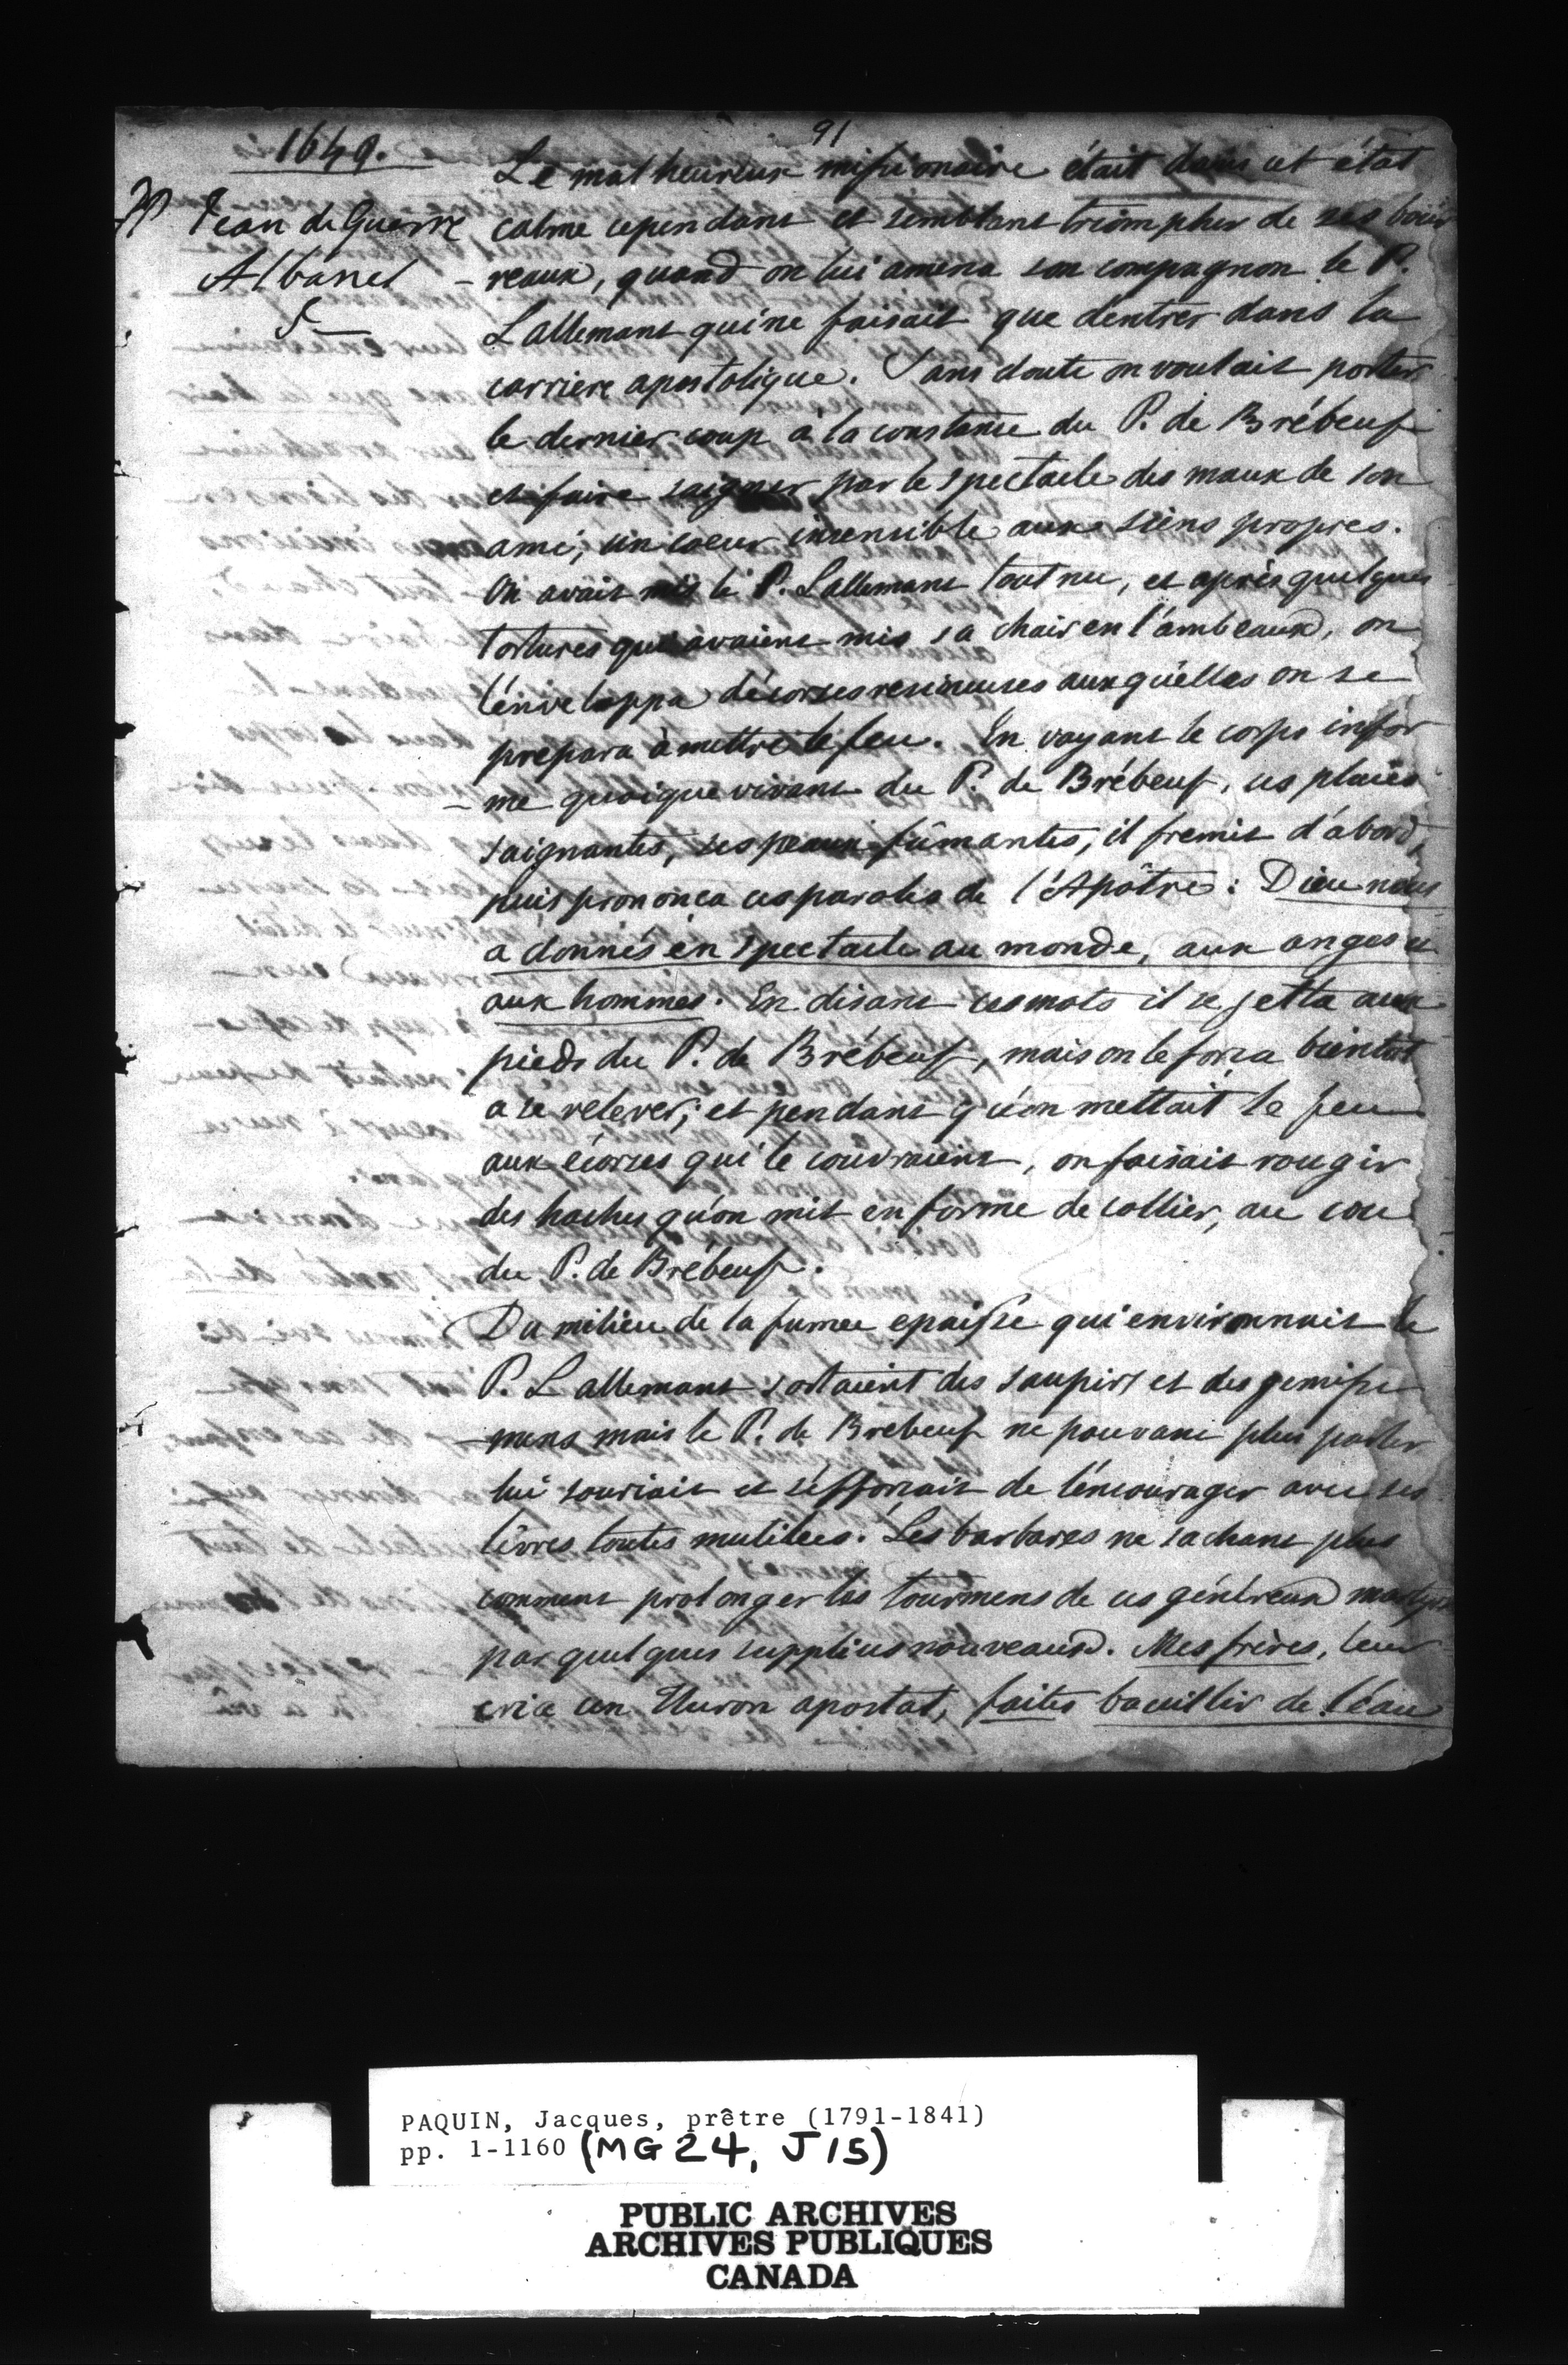 91
1649.
Jean de Guerre
Albanel
5
Le malheureux missionaire était dans cet état
calme cependant et semblant triompher de ses bour
- reaux, quand on lui amena son compagnon le P.
Lallemant qui ne faisait que d'entrer dans la
carriere apostolique. Sans doute on voulait porter
le dernier coup à la constance du P. de Brébeuf
et faire saigner par le spectacle des maux de son
ami, un coeur insensible aux siens propres.
On avait mis le P. Lallemant tout nu, et après quelques
tortures qui avaient mis sa chair en l'ambeaux, on
l'énveloppa d'écorses resineuses auxquélles on se
prepara à mettre le feu. En voyant le corps infor
- me quoique vivant du P. de Brébeuf, ces plaies
saignantes, ses peaux fûmantes, il fremit d'abord,
puis prononca ces paroles de l'Apôtre: Dieu nous
a donnés en spectacle au monde, aux anges et
aux hommes. En disant ces mots il se jetta aux
pieds du P. de Brébeuf, mais on le força bientot
a se relever; et pendant qu'on mettait le feu
aux écorces qui le couvraient, on faisait rougir
des haches qu'on mit en forme de collier, au cou
du P. de Brébeuf.
Du milieu de la fumee epaisse qui environnait le
P. Lallemant sortaient des soupirs et des gemisse
- mens mais le P. de Brebeuf ne pouvant plus parler
lui souriait et s'éfforcait de l'éncourager avec ses
lèvres toutes mutilees. Les barbares ne sachant plus
comment prolonger les tourmens de ces généreux martyrs
par quelques supplices nouveaux. Mes frères, leur
cria un Huron apostat, faites bouillir de l'éau
PAQUIN, Jacques, prêtre (1791-1841)
pp. 1-1160 (MG 24, J 15)
PUBLIC ARCHIVES
ARCHIVES PUBLIQUES
CANADA